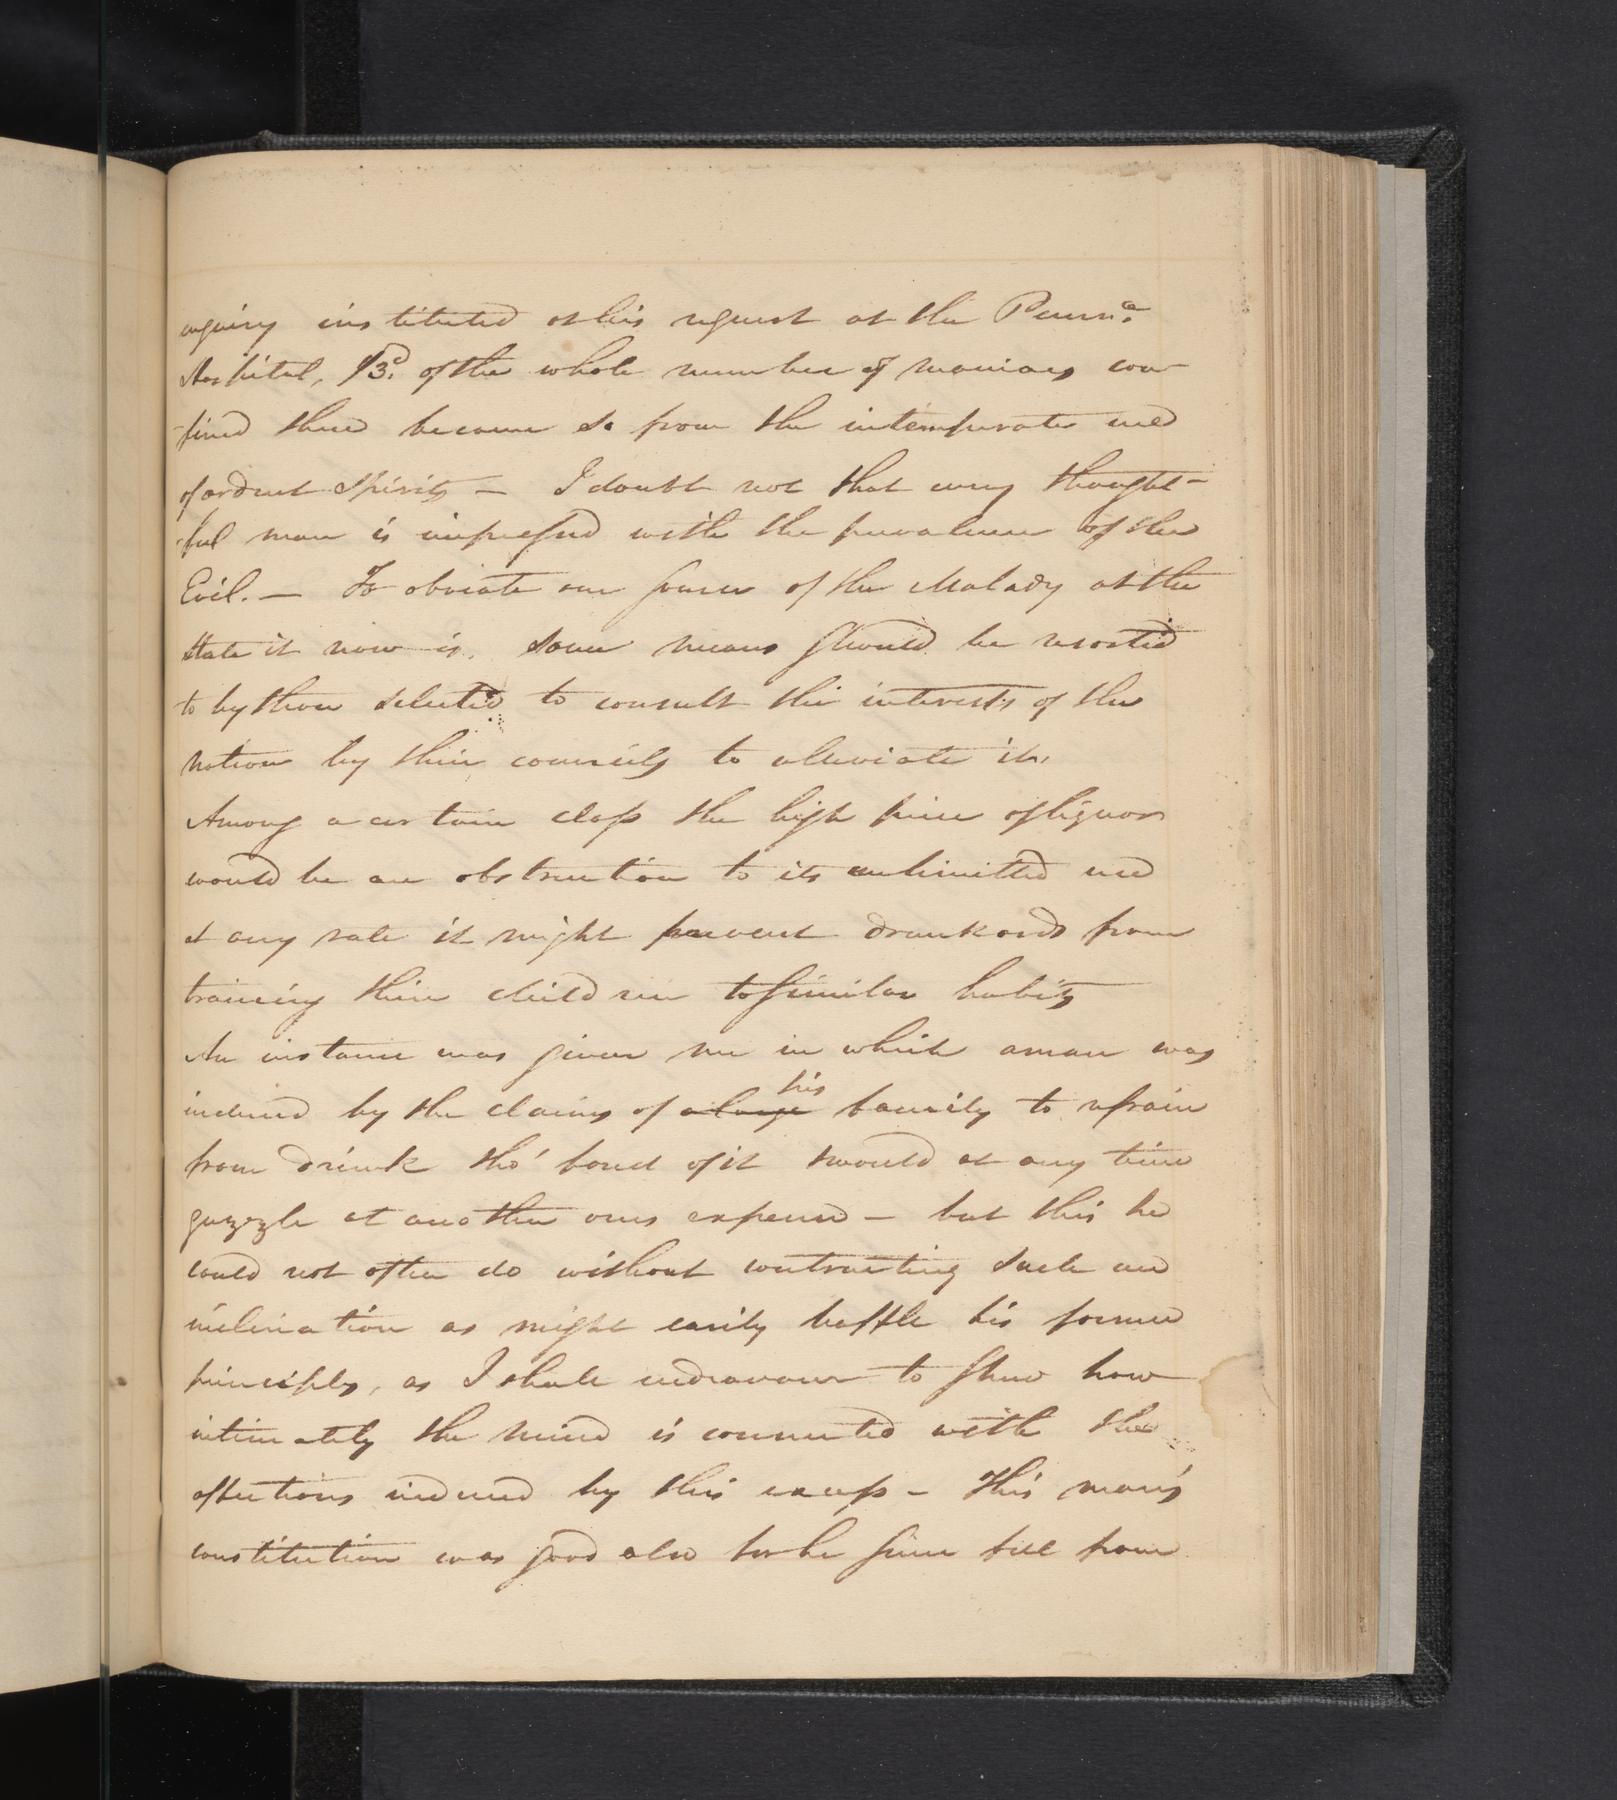 enquiry instituted at his request at the Penna.
Hospital, 1/3d. of the whole number of maniacs con-
fined there became so from the intemperate use
of ardent spirits — I doubt not that every thought-
ful man is impressed with the prevalence of the
Evil. — To obviate one source of the Malady at the
state it now is, some means should be resorted
to by those selected to consult the interests of the
nation by their councils to alleviate it.
Among a certain class the high price of liquor
would be an obstruction to its unlimitted use
at any rate it might prevent drunkards from
training their children to similar habits
An instance was given me in which a man was
induced by the claims of a large his family to refrain
from drink tho' fond of it & would at any time
guzzle at another ones expense — but this he
could not often do without contracting such an
inclination as might easily baffle his former
principles, as I shall endeavour to shew how
intimately the mind is connected with the
affections induced by this excess — This man's
constitution was good also for he since fell from